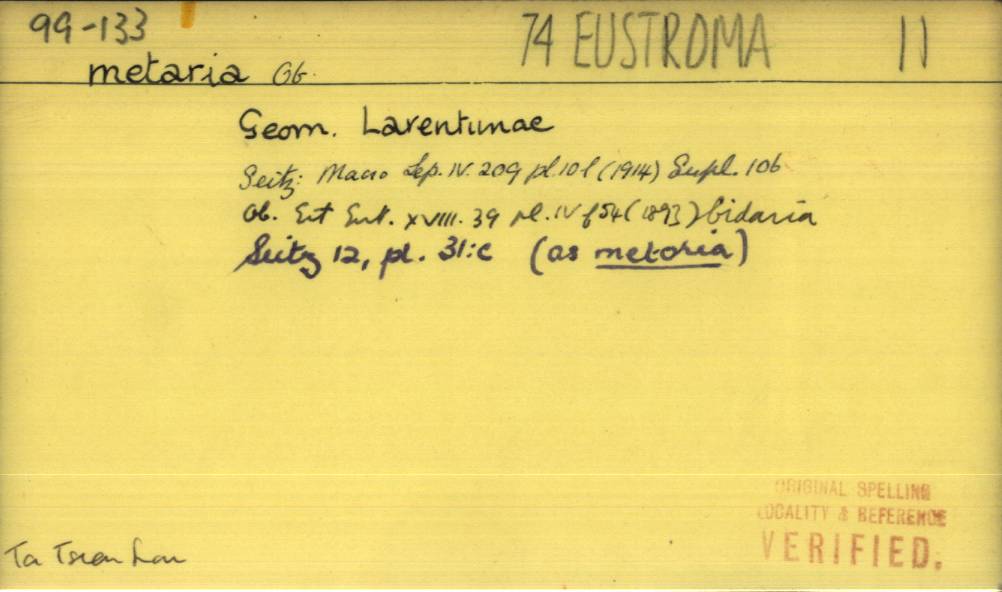 99-133
74 EUSTROMA 11
metaria Ob.
Geom. Larentiinae
Seitz: Macro Lep. IV. 209 pl. 10 l (1914) Supl. 106
Ob. Et Ent. XVIII. 39 pl. IV f 54 (1893) Cidaria
Seitz 12, pl. 31:c (as metoria)
ORIGINAL SPELLING
LOCALITY & REFERENCE
VERIFIED.
Ta Tsien Lou